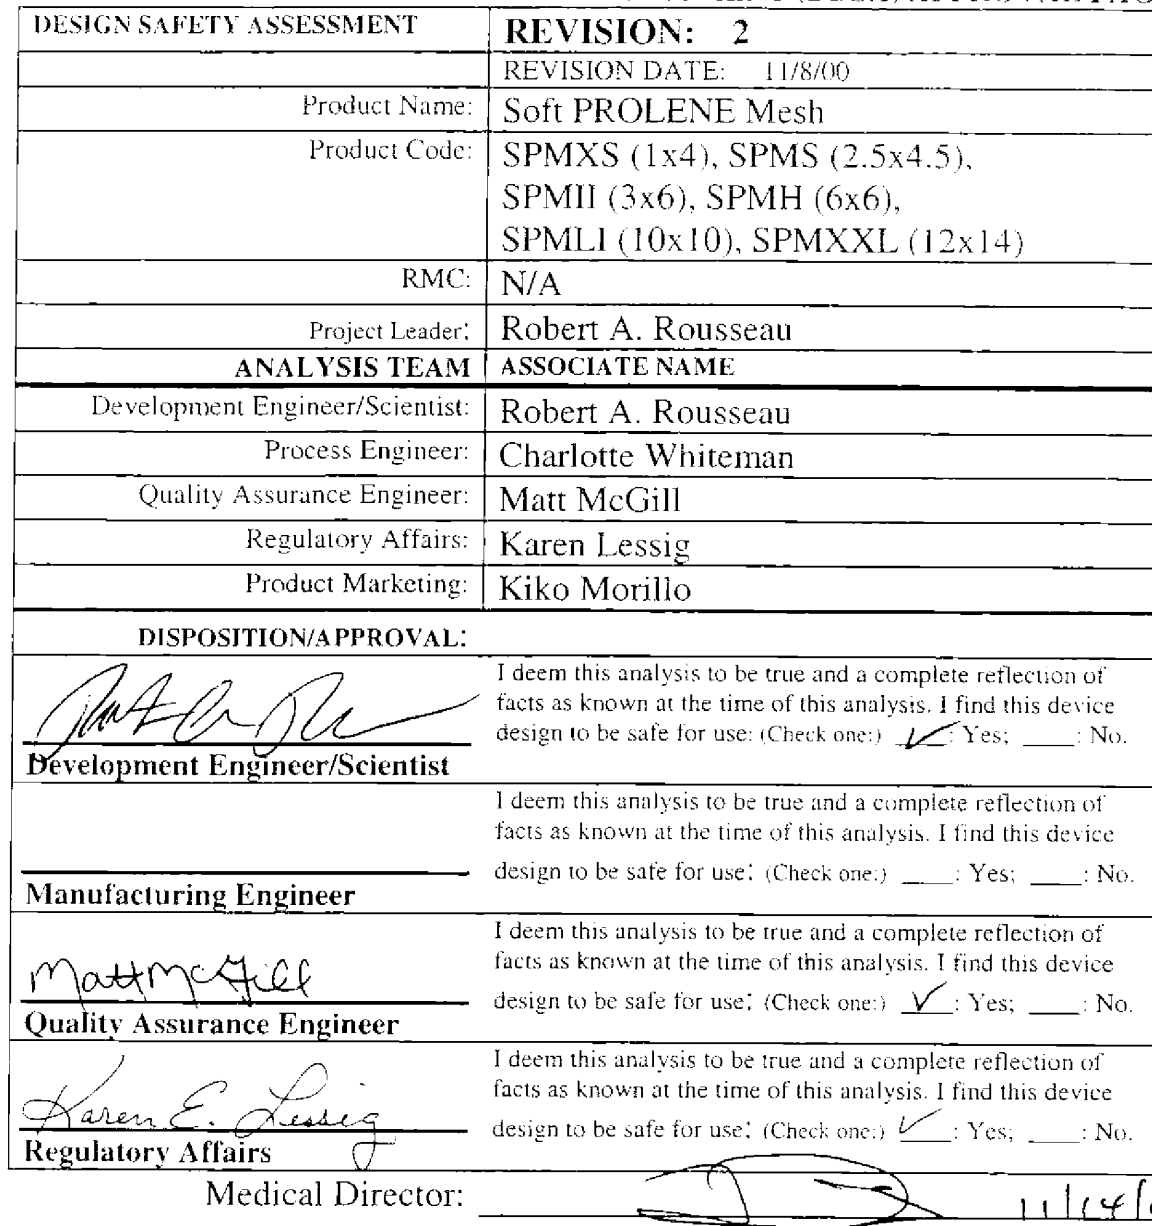 DESIGN SAFETY ASSESSMENT
REVISION: 2
REVISION DATE: 11/8/00
Product Name: Soft PROLENE Mesh
Product Code: SPMXS (1x4), SPMS (2.5x4.5),
SPMII (3x6), SPMH (6x6),
SPMLI (10x10), SPMXXL (12x14)
RMC: N/A
Project Leader: Robert A. Rousseau
ANALYSIS TEAM ASSOCIATE NAME
Development Engineer/Scientist: Robert A. Rousseau
Process Engineer: Charlotte Whiteman
Quality Assurance Engineer: Matt McGill
Regulatory Affairs: Karen Lessig
Product Marketing: Kiko Morillo
DISPOSITION/APPROVAL:
I deem this analysis to be true and a complete reflection of
facts as known at the time of this analysis. I find this device
design to be safe for use: (Check one:) ✓: Yes; ____: No.
Development Engineer/Scientist
I deem this analysis to be true and a complete reflection of
facts as known at the time of this analysis. I find this device
design to be safe for use: (Check one:) ____: Yes; ____: No.
Manufacturing Engineer
I deem this analysis to be true and a complete reflection of
facts as known at the time of this analysis. I find this device
Matt McGill
design to be safe for use: (Check one:) ✓: Yes; ____: No.
Quality Assurance Engineer
I deem this analysis to be true and a complete reflection of
facts as known at the time of this analysis. I find this device
Karen E. Lessig
design to be safe for use: (Check one:) ✓: Yes; ____: No.
Regulatory Affairs
Medical Director: 11/14/